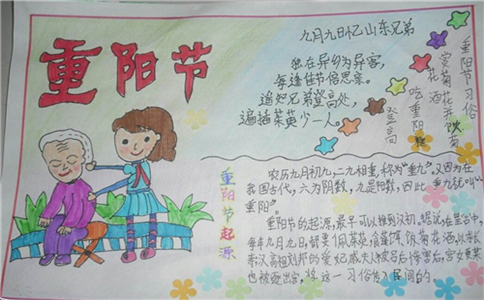 重阳节
九月九日忆山东兄弟
独在异乡为异客，
每逢佳节倍思亲。
遥知兄弟登高处，
遍插茱萸少一人。
重阳节习俗
赏菊花并饮菊
花酒
吃重阳糕
登高
重阳节起源
农历九月初九，二九相重，称为“重九”。又因为在
我国古代，六为阴数，九是阳数，因此，重九就叫“
重阳”。
重阳节的起源，最早可以推到汉初。据说，在皇宫中，
每年九月九日，都要佩茱萸，食蓬饵，饮菊花酒，以求长
寿。汉高祖刘邦的爱妃戚夫人被吕后惨害后，宫女贾某
也被逐出宫，将这一习俗传入民间的。